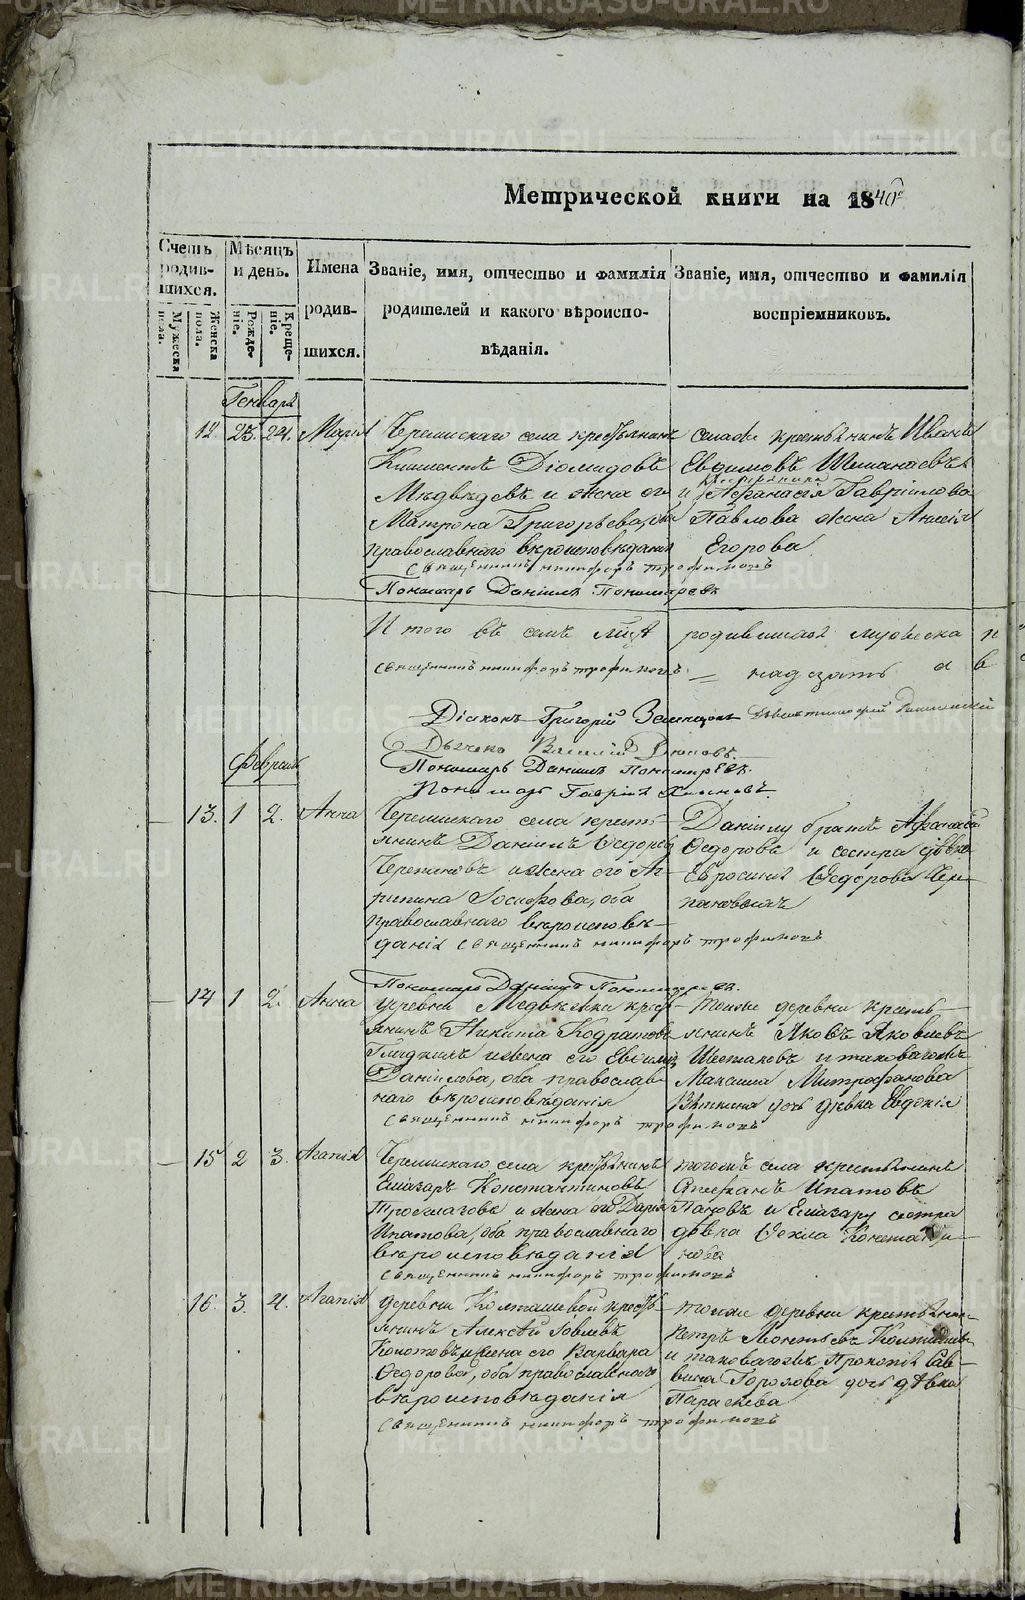 METRIKI.GASO-URAL.RU
Метрической книги на 1840й
Счетъ родив-шихся.
Мужеска пола.
Женска пола.
Мѣсяцъ и день.
Рожде-ніе.
Креще-ніе.
Имена родив-шихся.
Званіе, имя, отчество и фамилія
родителей и какого вѣроиспо-
вѣданія.
Званіе, имя, отчество и фамилія
воспріемниковъ.
Генварь
12. 23. 24. Марія
Черемискаго села крестьянинъ
Климентъ Діомидовъ
Медвѣдевъ и жена его
Матрона Григорьева, оба
православнаго вѣроисповѣданія
села же крестьянинъ Иванъ
Евдимовъ Шеманаевъ
и Афанасія Гавріилова
Павлова жена Анисія
Егорова
священникъ никифоръ трофимовъ
Пономарь Даніилъ Пономаревъ
Итого въ семъ родившихся мужеска
священникъ никифоръ трофимовъ надзять а в
Діаконъ Григорій
Дьячекъ Василій
Пономарь Даніилъ Пономаревъ.
Пономарь Гавріилъ
Февраль
13. 1 2. Анна
Черемискаго села кресть-
янинъ Даніилъ Ѳедоровъ
Черепановъ и жена его Аг-
рипина Іосифова, оба
православнаго вѣроисповѣ-
данія священникъ никифоръ трофимовъ
Даніилу братъ Афанасій
Ѳедоровъ и сестра дѣвка
Евросинія Ѳедорова Чере-
пановыхъ
Пономарь Даніилъ Пономаревъ.
14 1 2. Анна
деревни Медвѣдевки крест-
янинъ Никита Кодратовъ
Гладкихъ и жена его Евгенія
Даніилова, оба православ-
наго вѣроисповѣданія
священникъ никифоръ трофимовъ
тойже деревни кресть-
янинъ Яковъ Яковлевъ
Шестаковъ и таковагожъ
Максима Митрофанова
дочь дѣвка Евдокія
15 2 3. Агапія
Черемискаго села крестьянинъ
Елиазаръ Константиновъ
и жена его Дарія
Ипатова, оба православнаго
вѣроисповѣданія
священникъ никифоръ трофимовъ
тогожъ села крестьянинъ
Стефанъ Ипатовъ
Пановъ и Елиазару сестра
дѣвка Ѳекла Константи-
нова
16. 3. 4. Агапія
деревни Колташевой кресть-
янинъ Алексѣй Іовлевъ
Копотовъ и жена его Варвара
Ѳедорова, оба православнаго
вѣроисповѣданія
священникъ никифоръ трофимовъ
тойже деревни крестьянинъ
Петръ Леонтьевъ Колташевъ
и таковагожъ Прокопія Сав-
вина Горохова дочь дѣвка
Параскева